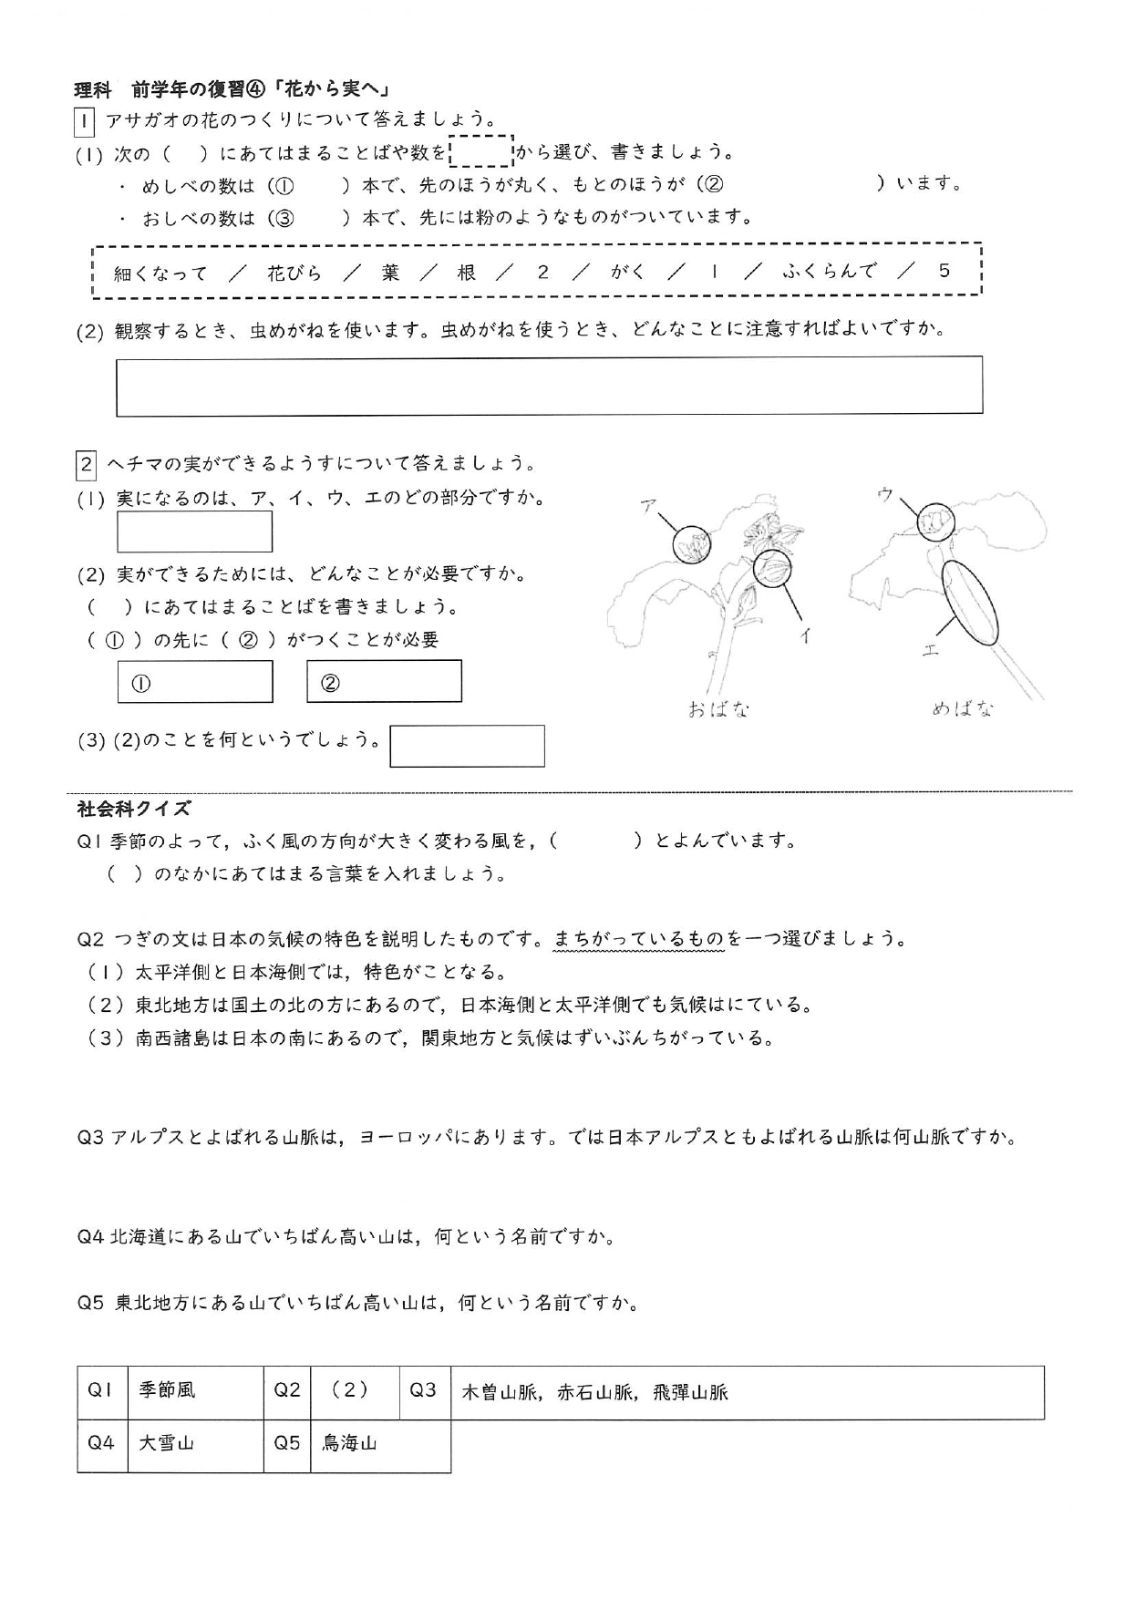 理科　前学年の復習④「花から実へ」
1 アサガオの花のつくりについて答えましょう。
(1) 次の（　）にあてはまることばや数を　　から選び、書きましょう。
・ めしべの数は（①　　）本で、先のほうが丸く、もとのほうが（②　　　　　　　）います。
・ おしべの数は（③　　）本で、先には粉のようなものがついています。
細くなって ／ 花びら ／ 葉 ／ 根 ／ 2 ／ がく ／ 1 ／ ふくらんで ／ 5
(2) 観察するとき、虫めがねを使います。虫めがねを使うとき、どんなことに注意すればよいですか。
2 ヘチマの実ができるようすについて答えましょう。
(1) 実になるのは、ア、イ、ウ、エのどの部分ですか。
(2) 実ができるためには、どんなことが必要ですか。
（　）にあてはまることばを書きましょう。
（ ① ）の先に（ ② ）がつくことが必要
① ②
(3) (2)のことを何というでしょう。
ア
イ
おばな
ウ
エ
めばな
社会科クイズ
Q1 季節のよって，ふく風の方向が大きく変わる風を，（　　　　）とよんでいます。
（　）のなかにあてはまる言葉を入れましょう。
Q2 つぎの文は日本の気候の特色を説明したものです。まちがっているものを一つ選びましょう。
（1）太平洋側と日本海側では，特色がことなる。
（2）東北地方は国土の北の方にあるので，日本海側と太平洋側でも気候はにている。
（3）南西諸島は日本の南にあるので，関東地方と気候はずいぶんちがっている。
Q3 アルプスとよばれる山脈は，ヨーロッパにあります。では日本アルプスともよばれる山脈は何山脈ですか。
Q4 北海道にある山でいちばん高い山は，何という名前ですか。
Q5 東北地方にある山でいちばん高い山は，何という名前ですか。
Q1 季節風 Q2 （2） Q3 木曽山脈，赤石山脈，飛彈山脈
Q4 大雪山 Q5 鳥海山